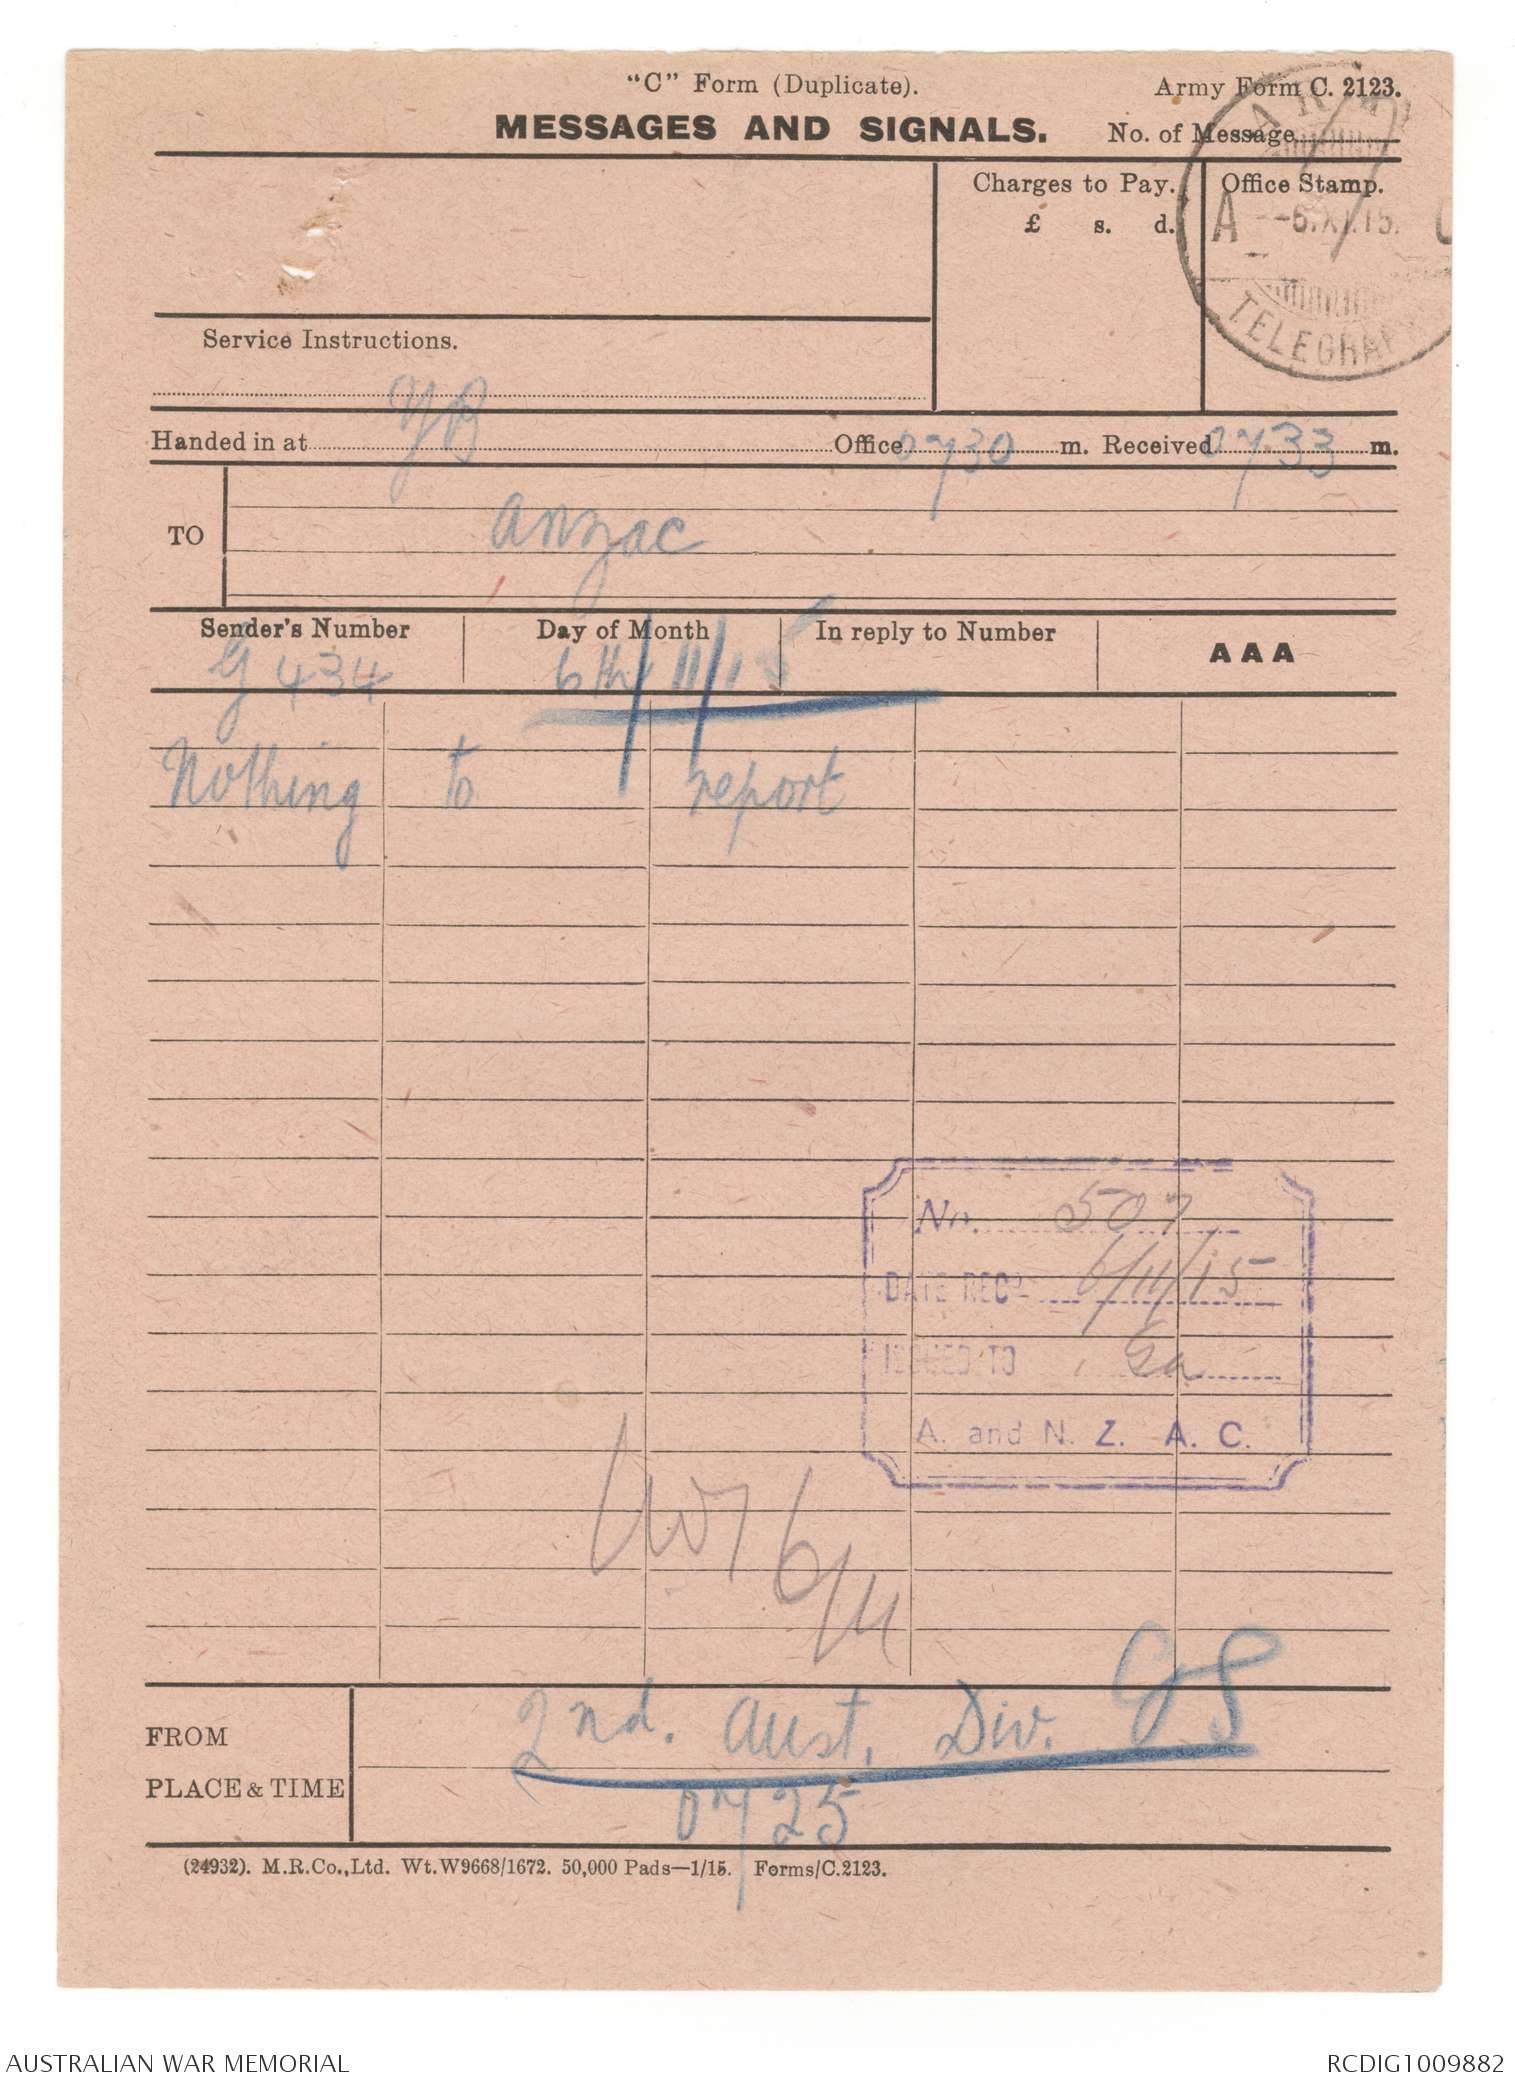 "C" Form (Duplicate). Army Form C. 2123.
MESSAGES AND SIGNALS. No. of Message
Charges to Pay. Office Stamp.
£ s. d.
A -6.XI.15.
TELEGRAPH
Service Instructions.
YB
Handed in at Office 0730 m. Received 0733 m.
TO Anzac
Sender's Number Day of Month In reply to Number AAA
G 434 6th/11/15
Nothing to report
No. 507
DATE REC^D 6/11/15
ISSUED TO Ga
A. and N. Z. A. C.
6/11
FROM 2nd. Aust. Div. GS
PLACE & TIME 0725
(24932). M.R.Co.,Ltd. Wt.W9668/1672. 50,000 Pads—1/15. Forms/C.2123.
AUSTRALIAN WAR MEMORIAL RCDIG1009882